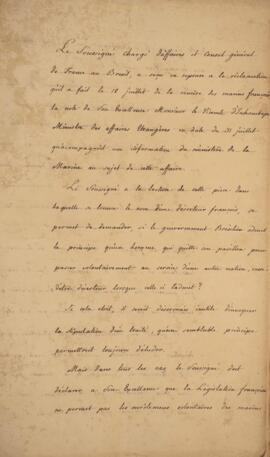 Le Soussigné chargé d'affaires et Consul général
de France au Brésil, a reçu en réponse à la réclamation
qu'il a fait le 18 juillet de la remise des marins français
la note de Son Excellence Monsieur le Vicomte d'Inhambupe
Ministre des affaires Etrangères en date du 31 juillet
qu'accompagnait une information du ministère de la
Marine au sujet de cette affaire.
Le Soussigné à la lecture de cette pièce dans
laquelle se trouve le nom d'un déserteur français, se
permet de demander, si le gouvernement Brésilien admet
le principe qu'un homme, qui quitte son pavillon pour
passer volontairement au service d'une autre nation, 
déserteur lorsque celle ci l'admet?
Si cela était, il serait désormais inutile d'invoquer
la stipulation d'un traité, qu'un semblable principe
permettrait toujours d'éluder.
Mais dans tous les cas le Soussigné doit
déclarer à Son Excellence que la Législation française
ne permet pas les enrôlemens volontaires des marins